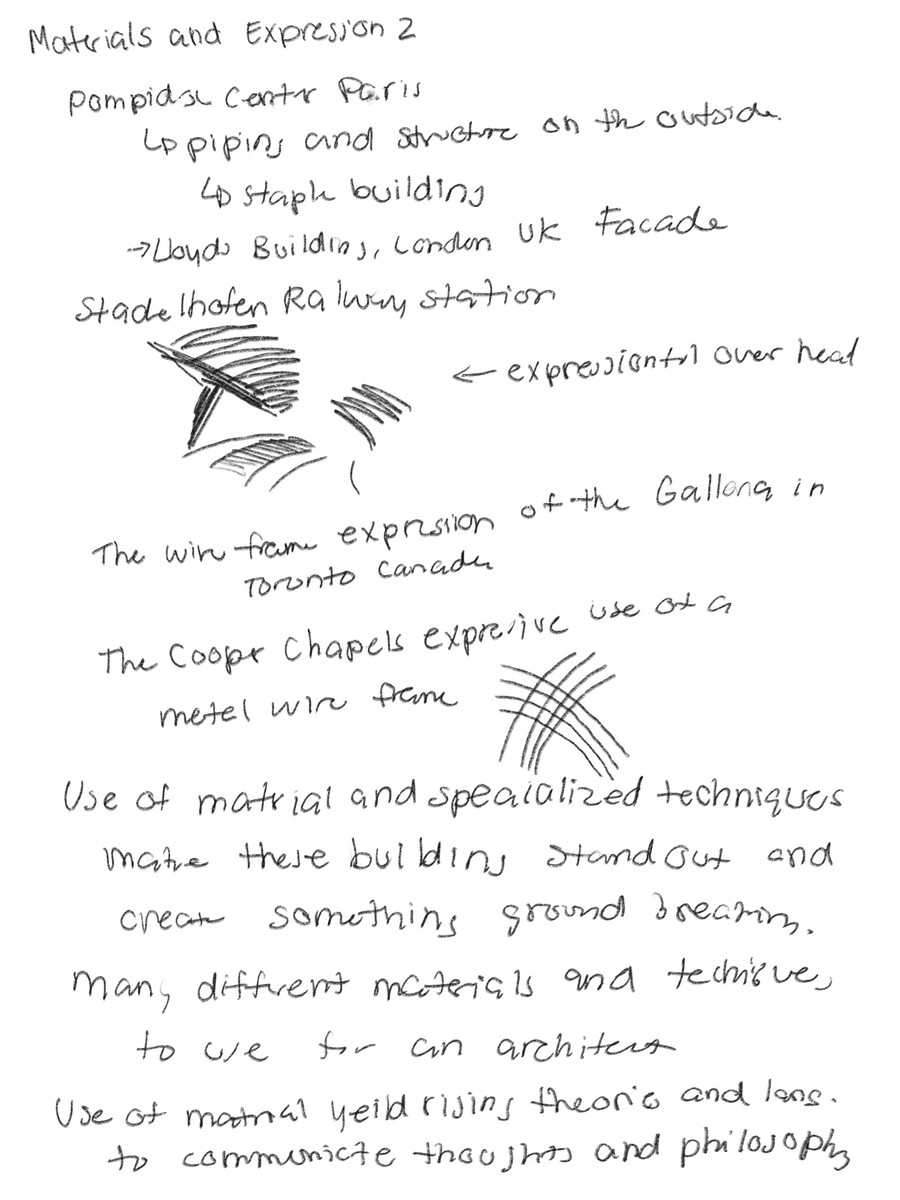 Materials and Expression 2
Pompidou Center Paris
↳ piping and structure on the outside.
↳ staple building
→ Lloyds Building, London UK Facade
Stadelhofen Ralway station
← expressionful over head
The wire frame expression of the Galleria in
Toronto Canada
The Cooper Chapels expresive use of a
metel wire frame
Use of matrial and speaialized techniques
make these building stand out and
create something ground breaking.
Many different materials and techique,
to use for an architect
Use of matrial yeild rising theoris and lang.
to communicte thoughts and philosophy